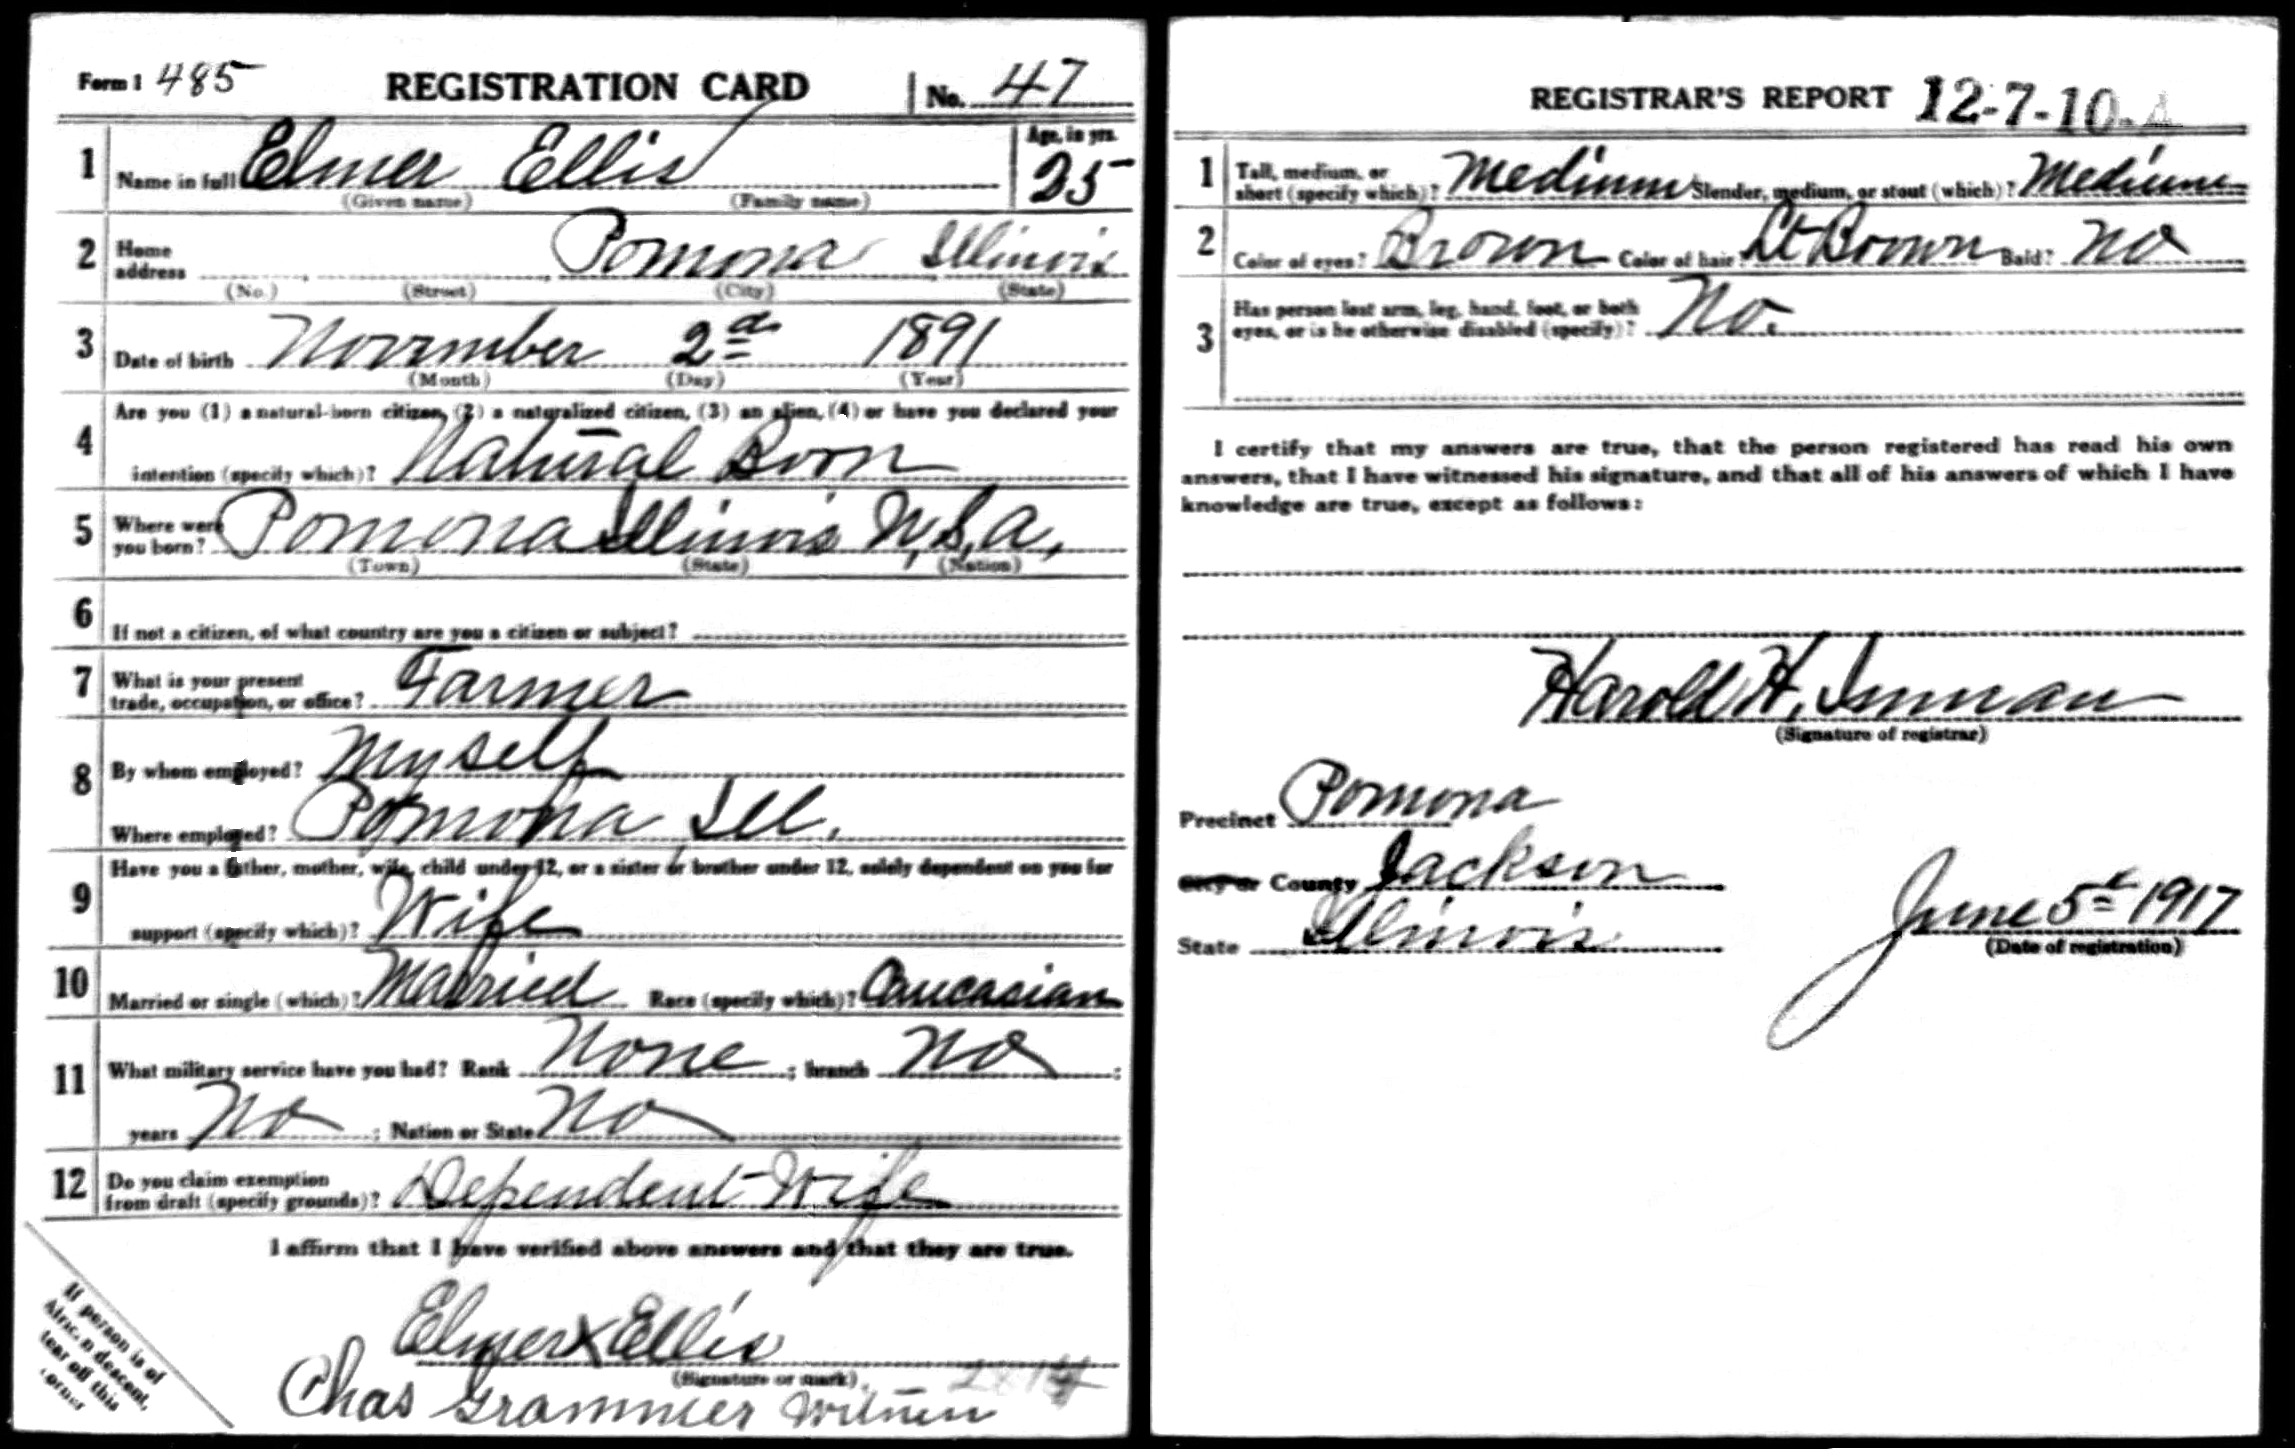 Form 1 485 REGISTRATION CARD No. 47
1 Name in full Elmer Ellis Age, in yrs. 25
(Given name) (Family name)
2 Home address Pomona Illinois
(No.) (Street) (City) (State)
3 Date of birth November 2nd 1891
(Month) (Day) (Year)
4 Are you (1) a natural-born citizen, (2) a naturalized citizen, (3) an alien, (4) or have you declared your
intention (specify which)? Natural Born
5 Where were you born? Pomona Illinois U.S.A.
(Town) (State) (Nation)
6 If not a citizen, of what country are you a citizen or subject?
7 What is your present trade, occupation, or office? Farmer
8 By whom employed? Myself
Where employed? Pomona Ill.
9 Have you a father, mother, wife, child under 12, or a sister or brother under 12, solely dependent on you for
support (specify which)? Wife
10 Married or single (which)? Married Race (specify which)? Caucasian
11 What military service have you had? Rank None ; branch No ;
years No ; Nation or State No
12 Do you claim exemption from draft (specify grounds)? Dependent Wife
I affirm that I have verified above answers and that they are true.
Elmer X Ellis
(Signature or mark)
Chas Grammer Witness
If person is of
African descent,
tear off this
corner
REGISTRAR'S REPORT 12-7-10. A
1 Tall, medium, or short (specify which)? Medium Slender, medium, or stout (which)? Medium
2 Color of eyes? Brown Color of hair? Lt Brown Bald? No
3 Has person lost arm, leg, hand, foot, or both
eyes, or is he otherwise disabled (specify)? No.
I certify that my answers are true, that the person registered has read his own
answers, that I have witnessed his signature, and that all of his answers of which I have
knowledge are true, except as follows:
Harold H. Inman
(Signature of registrar)
Precinct Pomona
City or County Jackson
State Illinois
June 5th 1917
(Date of registration)